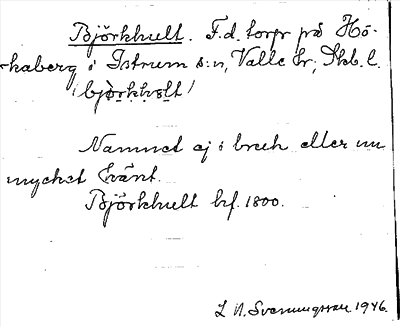 Björkhult. F.d. torp på Hö-
kaberg i Istrum s:n, Valle hr, Skb. l.
/bjo̤rkhṳlt/
Namnet ej i bruk eller nu
mycket känt.
Björkhult krf. 1800.
L. N. Svenungsson 1946.